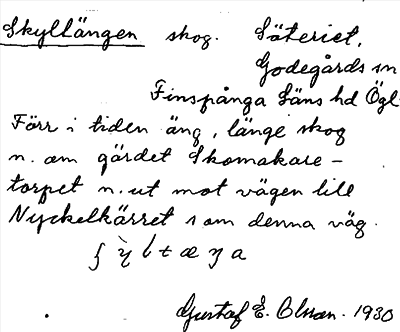 Skyllängen skog. Säteriet,
Godegårds sn
Finspånga läns hd Ögl.
Förr i tiden äng, länge skog
n. om gärdet Skomakare-
torpet n. ut mot vägen till
Nyckelkärret s om denna väg.
Gustaf E. Olsson. 1930